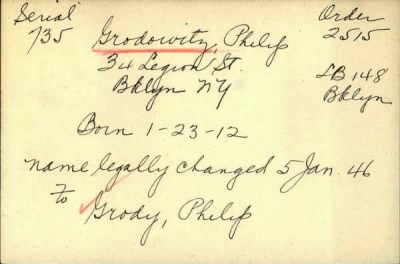 Serial Order
735 Grodowitz, Philip 2515
34 Legion St.
Bklyn NY LB 148
Bklyn
Born 1-23-12
name legally changed 5 Jan. 46
to
Grody, Philip